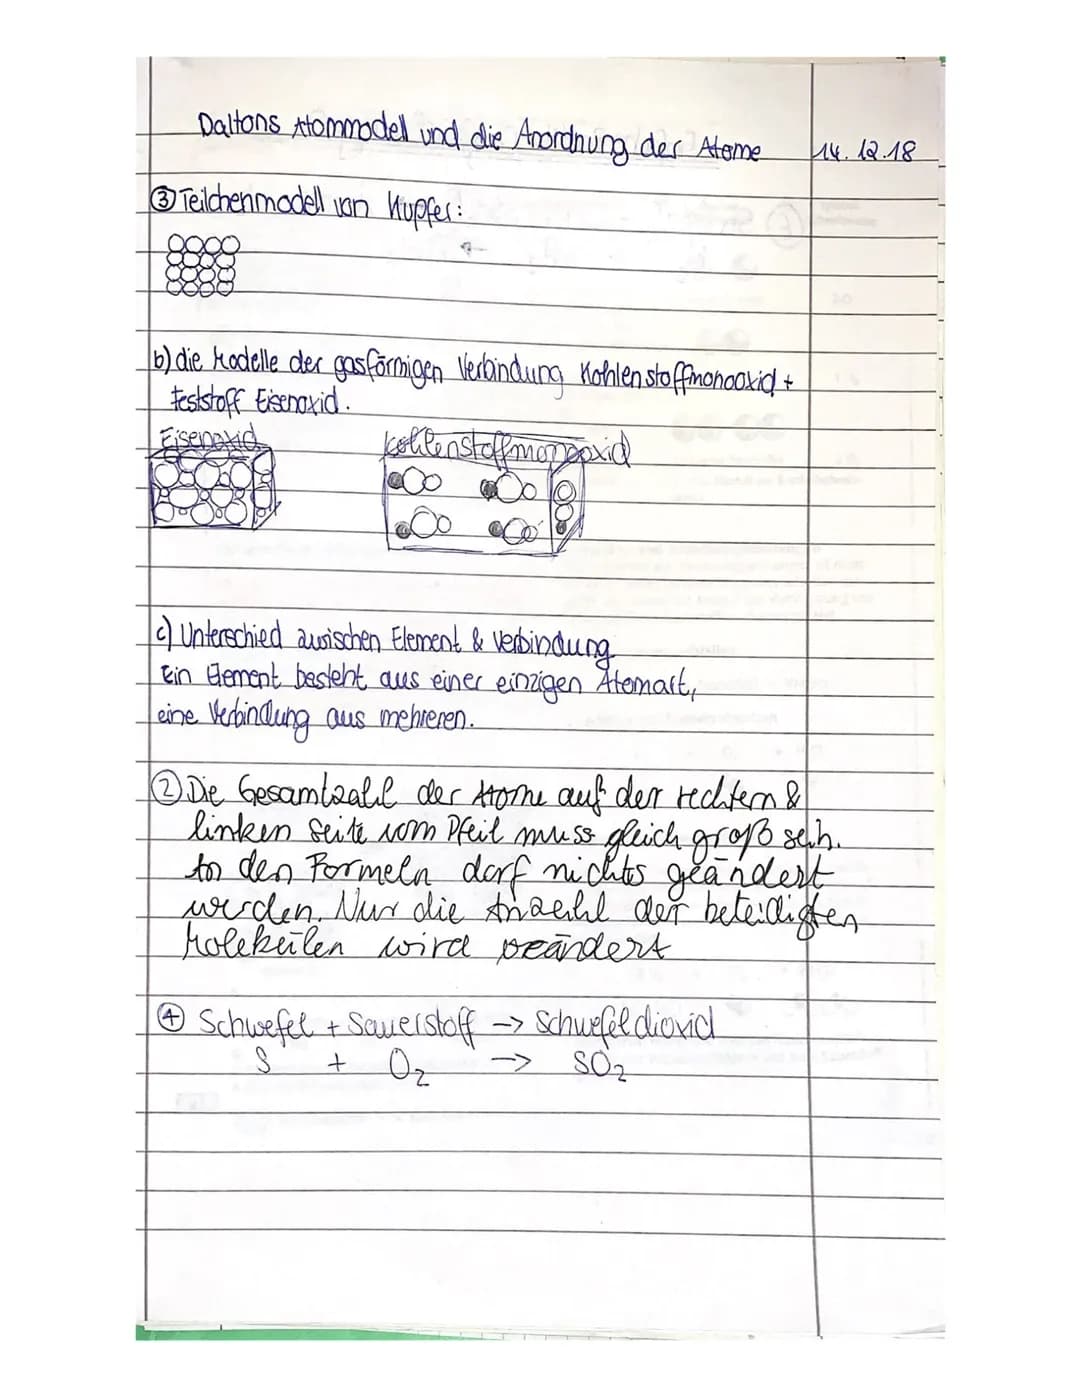 Daltons Atommodell und die Anordnung der Atome 14.12.18
③ Teilchenmodell von Kupfer:
b) die Modelle der gasförmigen Verbindung Kohlenstoffmonooxid +
Feststoff Eisenoxid.
Eisenoxid Kohlenstoffmonooxid
c) Unterschied zwischen Element & Verbindung
Ein Element besteht aus einer einzigen Atomart,
eine Verbindung aus mehreren.
② Die Gesamtzahl der Atome auf der rechtern &
linken Seite vom Pfeil muss gleich groß sein.
In den Formeln darf nichts geändert
werden. Nur die Anzahl der beteidigten
Molekülen wird geändert
④ Schwefel + Sauerstoff -> Schwefeldioxid
S + O₂ -> SO₂